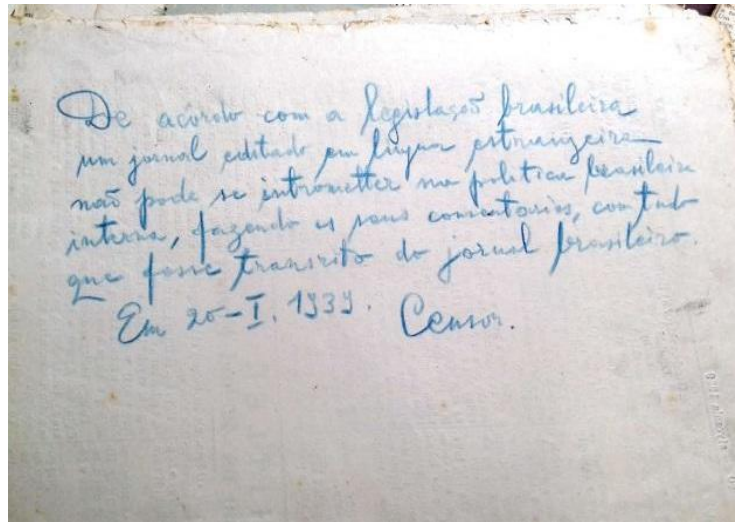 De acôrdo com a legislação brasileira
um jornal editado em lingua estrangeira
não pode se intrometter na politica brasileira
interna, fazendo os seus comentarios, com tudo
que fosse transrito do jornal brasileiro.
Em 20-I. 1939. Censor.